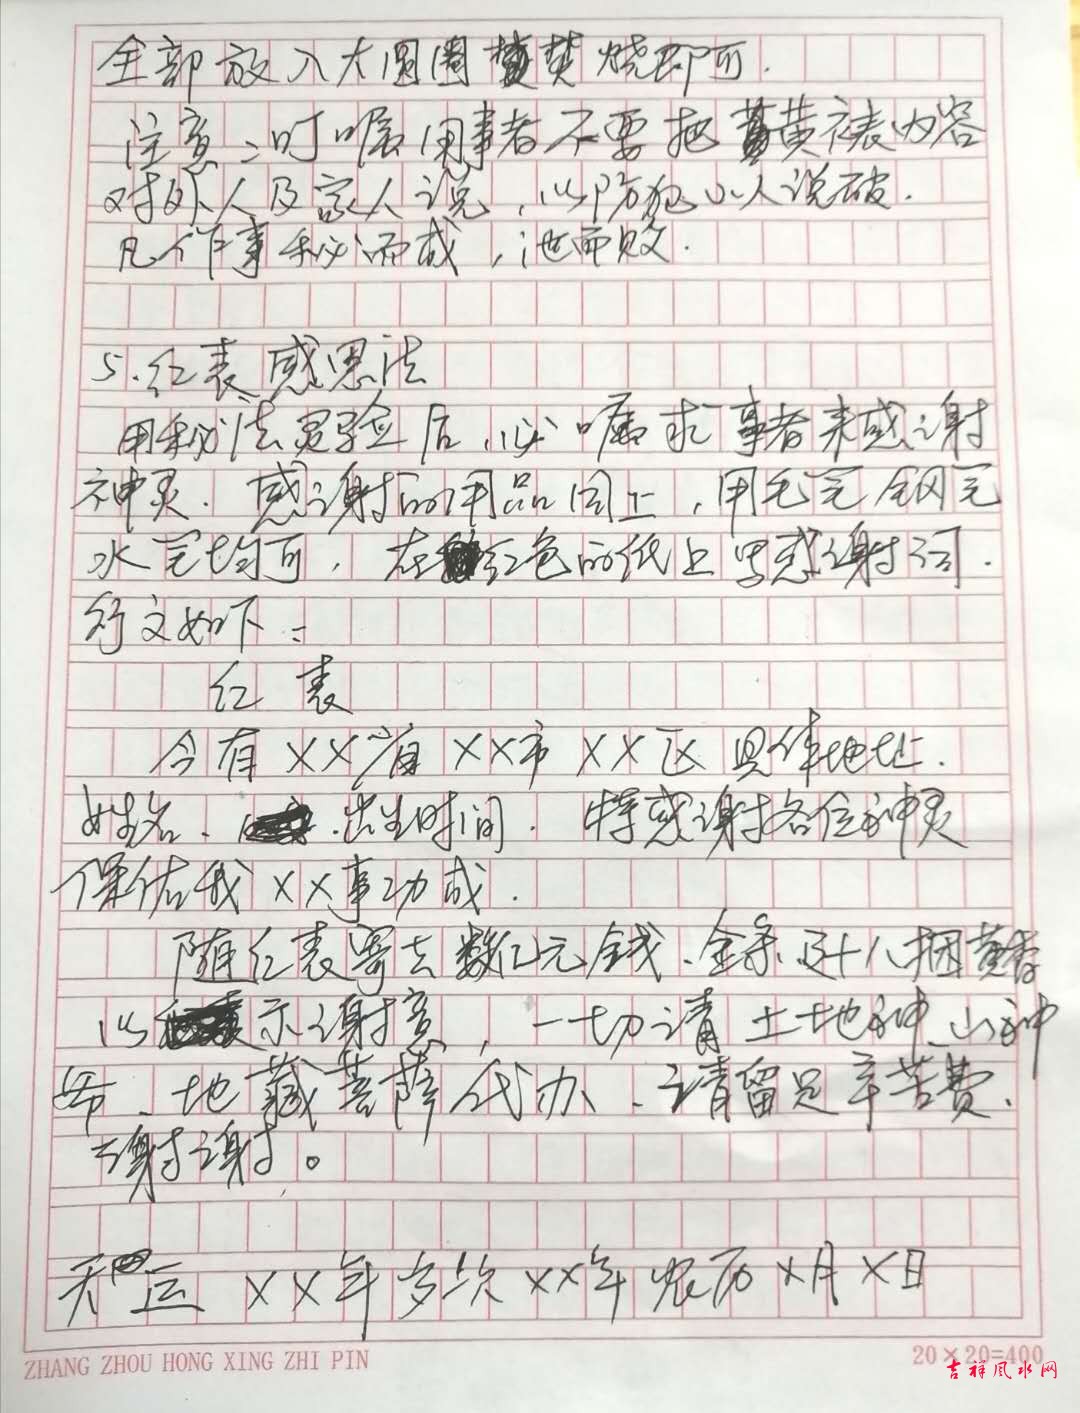 全部放入大圆圈焚烧即可.
注意:叮嘱用事者不要把黄裱内容
对外人及家人说,以防犯小人说破.
凡作事秘而成,泄而败.
5.红表感恩法
用秘法灵验后,必嘱求事者来感谢
神灵.感谢的用品同上,用毛笔钢笔
水笔均可,在红色的纸上写感谢词.
行文如下:
红表
今有××省××市××区具体地址.
姓名、出生时间.特感谢各位神灵
保佑我××事功成.
随红表寄去数亿元钱、金条、及十八捆黄香
以示谢意,一切请土地神、山神
爷、地藏菩萨代办、请留足辛苦费、
谢谢。
天运××年岁次××年农历×月×日
ZHANG ZHOU HONG XING ZHI PIN
20×20=400
吉祥风水网